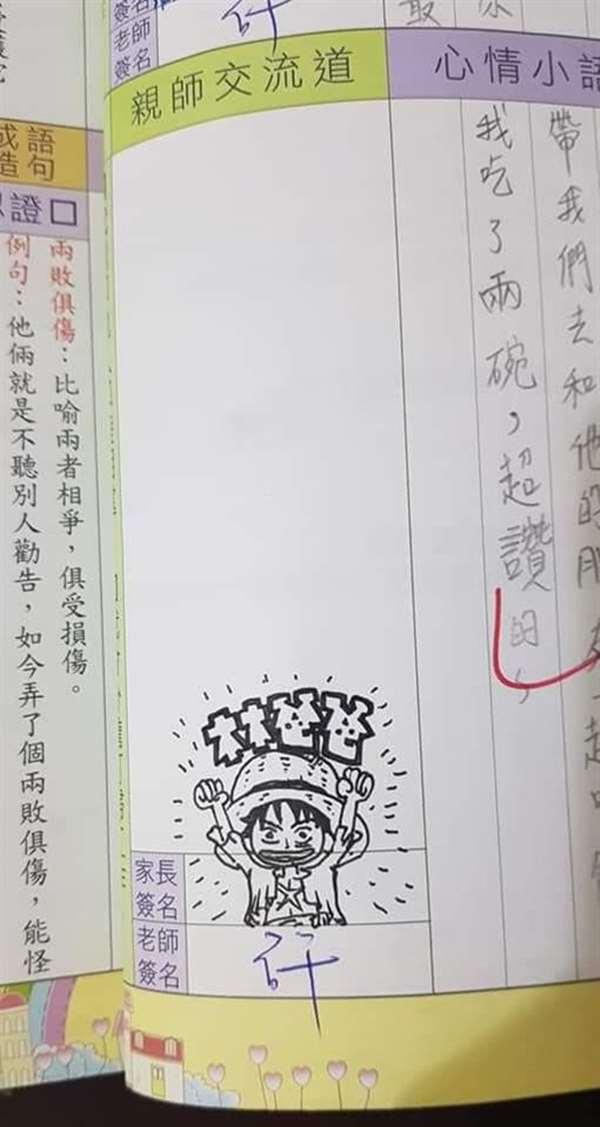 老師
簽名
心情小語
帶我們去和他的朋友一起
我吃了兩碗，超讚的，
親師交流道
林爸爸
家長
簽名
老師
簽名
成語
造句
認證
兩敗俱傷：比喻兩者相爭，俱受損傷。
例句：他倆就是不聽別人勸告，如今弄了個兩敗俱傷，能怪